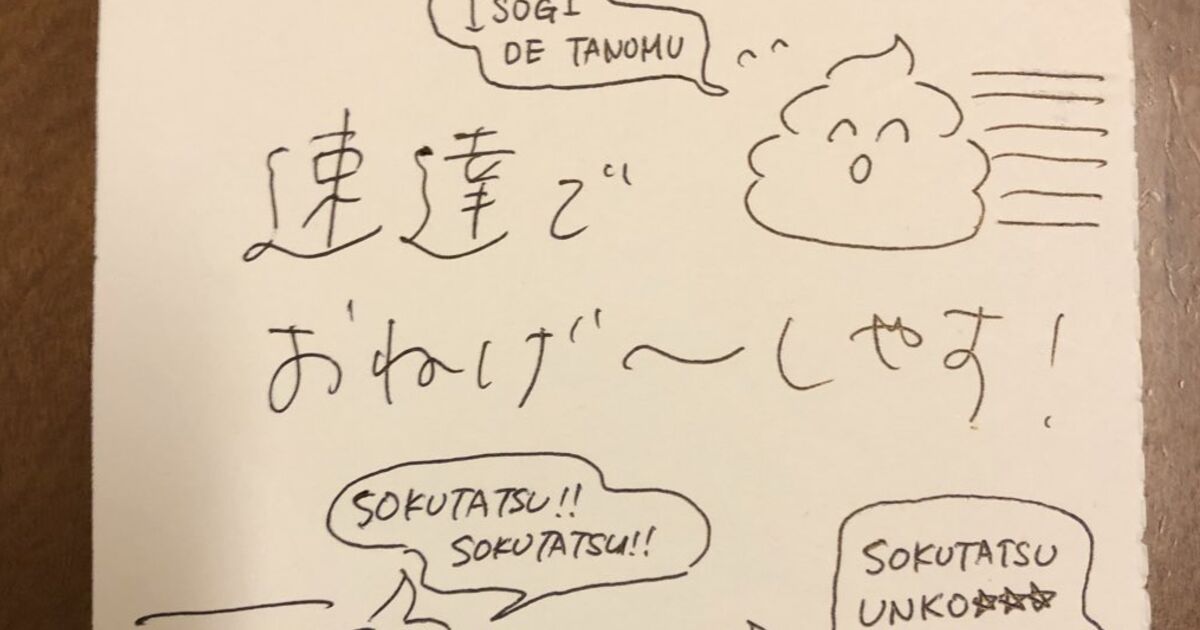 ISOGI
DE TANOMU
速達で
おねげ〜しやす!
SOKUTATSU!!
SOKUTATSU!!
SOKUTATSU
UNKO☆☆☆